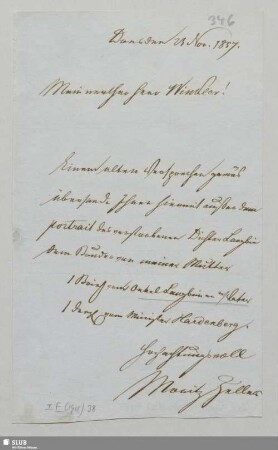 346
Dresden 23 Nov. 1857.
Mein werther Herr Winkler!
Einem alten Versprechen gemäß
übersende Ihnen hiermit außer dem
portrait des verstorbenen Dichter Langbein
dem Bruder von meiner Mutter
1 Brief vom Onkel Langbein an Vater
1 desgl. vom Minister Hardenberg.
Hochachtungsvoll
Moritz Zeller
SLUB